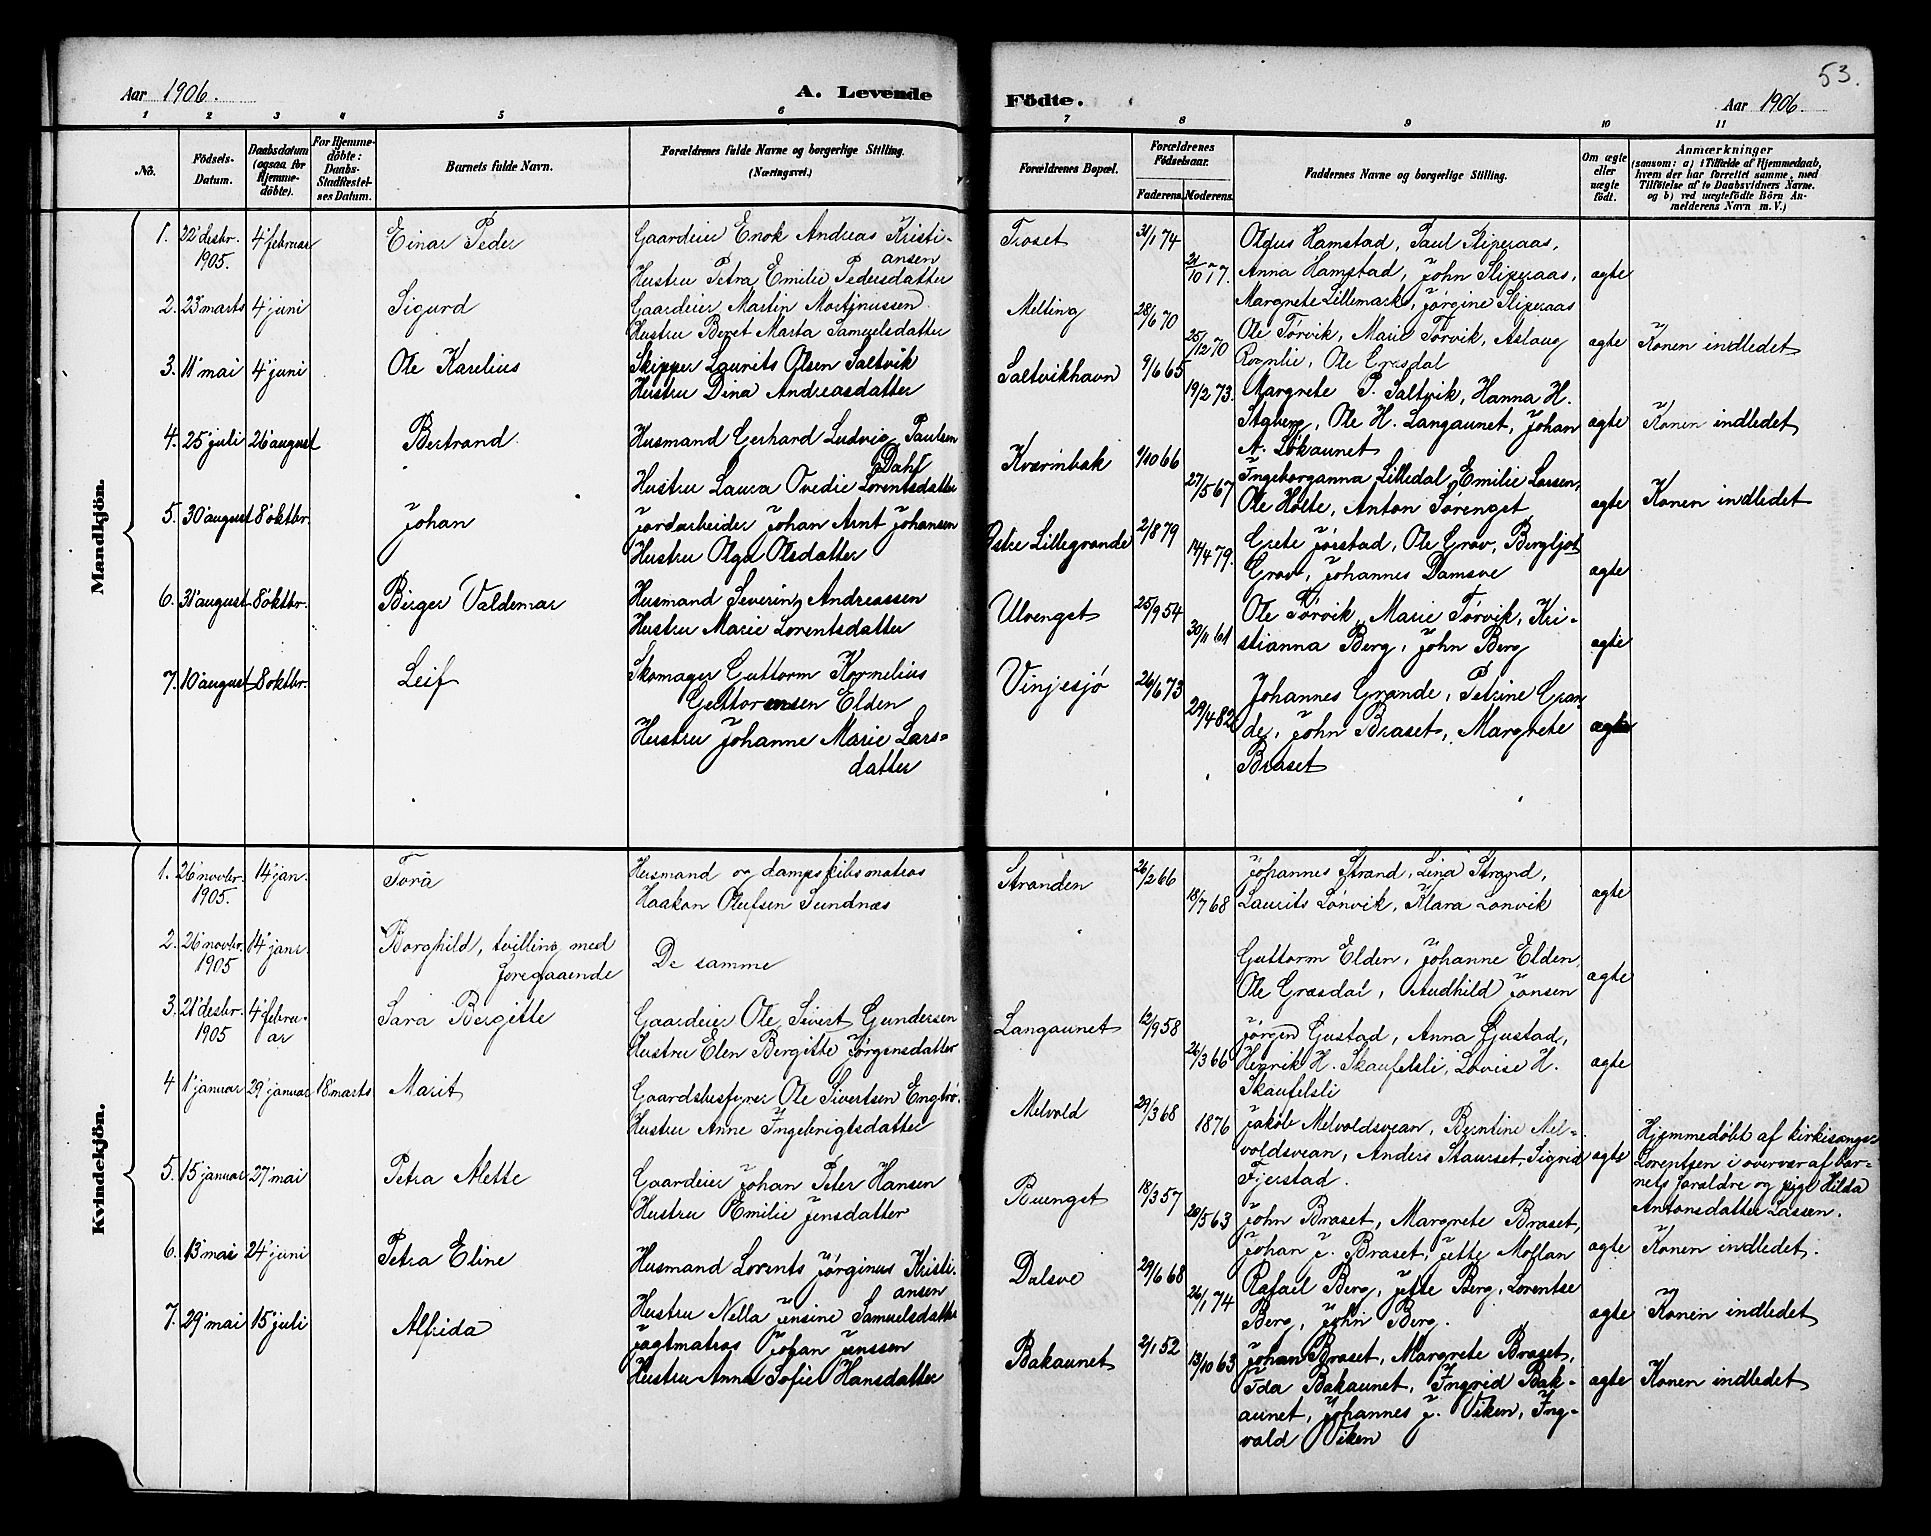 53.
Aar 1906.
A. Levende
Födte.
Aar 1906.
1 2 3 4 5 6 7 8 9 10 11
No.
Födsels-Datum.
Daabsdatum (ogsaa for Hjemmedöbte).
For Hjemmedöbte: Daabs-Stadfæstelses Datum.
Barnets fulde Navn.
Forældrenes fulde Navne og borgerlige Stilling.
(Næringsvei.)
Forældrenes Bopæl.
Forældrenes Födselsaar.
Faderens. Moderens.
Faddernes Navne og borgerlige Stilling.
Om ægte eller uægte födt.
Anmærkninger
(saasom: a) i Tilfælde af Hjemmedaab,
hvem der har forrettet samme, med
Tilföielse af to Daabsvidners Navne.
og b) ved uægtefödte Börn An-
melderens Navn m. V.)
Mandkjön.
1. 22' desbr. 1905. 4' februar Einar Peder
Gaardeier Enok Andreas Kristi-
ansen
Hustru Petra Emilie Pedersdatter
Troset 31/1 74 21/10 77.
Oldus Hamstad, Paul Sliperaas,
Anna Hamstad, John Sliperaas,
Margrete Lillemark, Jørgine Sliperaas
ægte
2. 23' marts 4' juni Sigurd
Gaardeier Martin Mortinussen
Hustru Beret Marta Samuelsdatter
Melting 28/6 70 25/12 70
Ole Tørvik, Marie Tørvik, Aslaug
Romlie, Ole Græsdal
ægte Konen indledet
3. 11' mai 4' juni Ole Karelius
Skipper Laurits Olsen Saltvik
Hustru Dina Andreasdatter
Saltvikhavn 9/6 65 19/2 73.
Margrete P. Saltvik, Hanna H.
Staberg, Ole H. Langaunet, Johan
A. Løkaunet
ægte Konen indledet
4. 25' juli 26' august Bertrand
Husmand Gerhard Ludvig Paulsen
Dahl
Hustru Laura Ovedie Lorentsdatter
Kværnbak 1/10 66 27/5 67
Ingeborganna Lilledal Emilie Larsen,
Ole Holte, Anton Sørenget
ægte Konen indledet
5. 30' august 8' oktbr. Johan
Jordarbeider Johan Arnt Johansen
Hustru Olga Olsdatter
Østre Lillegrande 2/8 79 14/4 79.
Grete Jørstad, Ole Grav, Bergljot
Grav, Johannes Damsve
ægte
6. 31' august 8' oktbr. Birger Valdemar
Husmand Severin Andreassen
Hustru Marie Lorentsdatter
Ulvenget 25/9 54 30/11 61
Ole Tørvik, Marie Tørvik, Kri-
stianna Berg, John Berg
ægte
7. 10' august 8' oktbr. Leif
Skomager Guttorm Kornelius
Guttormsen Elden
Hustru Johanne Marie Lars-
datter
Vinjesjø 26/6 73 29/4 82
Johannes Grande, Petrine Gran-
de, John Braset, Margrete
Braset
ægte
Kvindekjön.
1. 26' novbr. 1905. 14' jan. Tora
Husmand og dampskibsmatros
Haakon Olufsen Sundnæs
Stranden 26/2 66 18/7 68
Johannes Strand, Lina Strand,
Laurits Lønvik, Klara Lønvik
ægte
2. 26' novbr. 1905 14' janr Borghild, tvilling med
foregaaende
De samme
Guttorm Elden, Johanne Elden,
Ole Græsdal, Audhild Jonsen
ægte
3. 21' desbr. 1905 4' febru-
ar Sara Bergitte
Gaardeier Ole Sivert Gundersen
Hustru Elen Bergitte Jørgensdatter
Langaunet 12/9 58 26/3 66
Jørgen Gustad, Anna Gjustad,
Henrik H. Skaufelsli, Lovise H.
Skaufelsli
ægte
4 1' januar 29' januar 18' marts Marit
Gaardsbestyrer Ole Sivertsen Engbrø.
Hustru Anne Ingebrigtsdatter
Melvold 29/3 68 1876
Jakob Melvoldsvean, Berntine Mel-
voldsvean, Anders Staurset, Sigrid
Fjerstad.
ægte
Hjemmedøbt af kirkesanger
Lorentsen i overvær af bar-
nets forældre og pige Hilda
Antonsdatter Lassen.
5. 15' januar 27' mai Petra Alette
Gaardeier Johan Peter Hansen
Hustru Emilie Jensdatter
Ruenget 18/3 57 20/5 63
John Braset, Margrete Braset,
Johan J. Braset, Jette Moflan
ægte Konen indledet.
6. 13' mai 24' juni Petra Eline
Husmand Lorents Jørginus Kristi-
ansen
Hustru Nella Jensine Samuelsdatter
Dalsve 29/6 68 26/1 74
Rafael Berg, Jette Berg, Lorentse
Berg, John Berg.
ægte Konen indledet
7. 29' mai 15' juli Alfrida
Jagtmatros Johan Jenssen
Hustru Anna Sofie Hansdatter
Bakaunet 21/1 52 13/10 63
Johan Braset, Margrete Braset,
Ida Bakaunet, Ingrid Bak-
aunet, Johannes J. Viken, Ing-
vald Viken
ægte Konen indledet